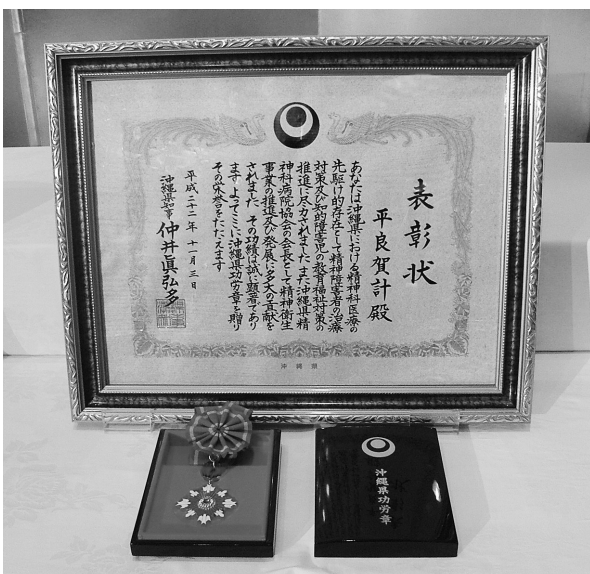 表彰状
平良賀計殿
あなたは沖縄県における精神科医療の
先駆け的存在として精神障害者の治療
対策及び知的障害児の教育福祉対策の
推進に尽力されましたまた沖縄県精
神科病院協会の会長として精神衛生
事業の推進及び発展に多大の貢献を
されました その功績は誠に顕著であり
ます よってここに沖縄県功労章を贈り
その栄誉をたたえます
平成二十二年十一月三日
沖縄県知事 仲井眞弘多
沖縄県
沖縄県功労章